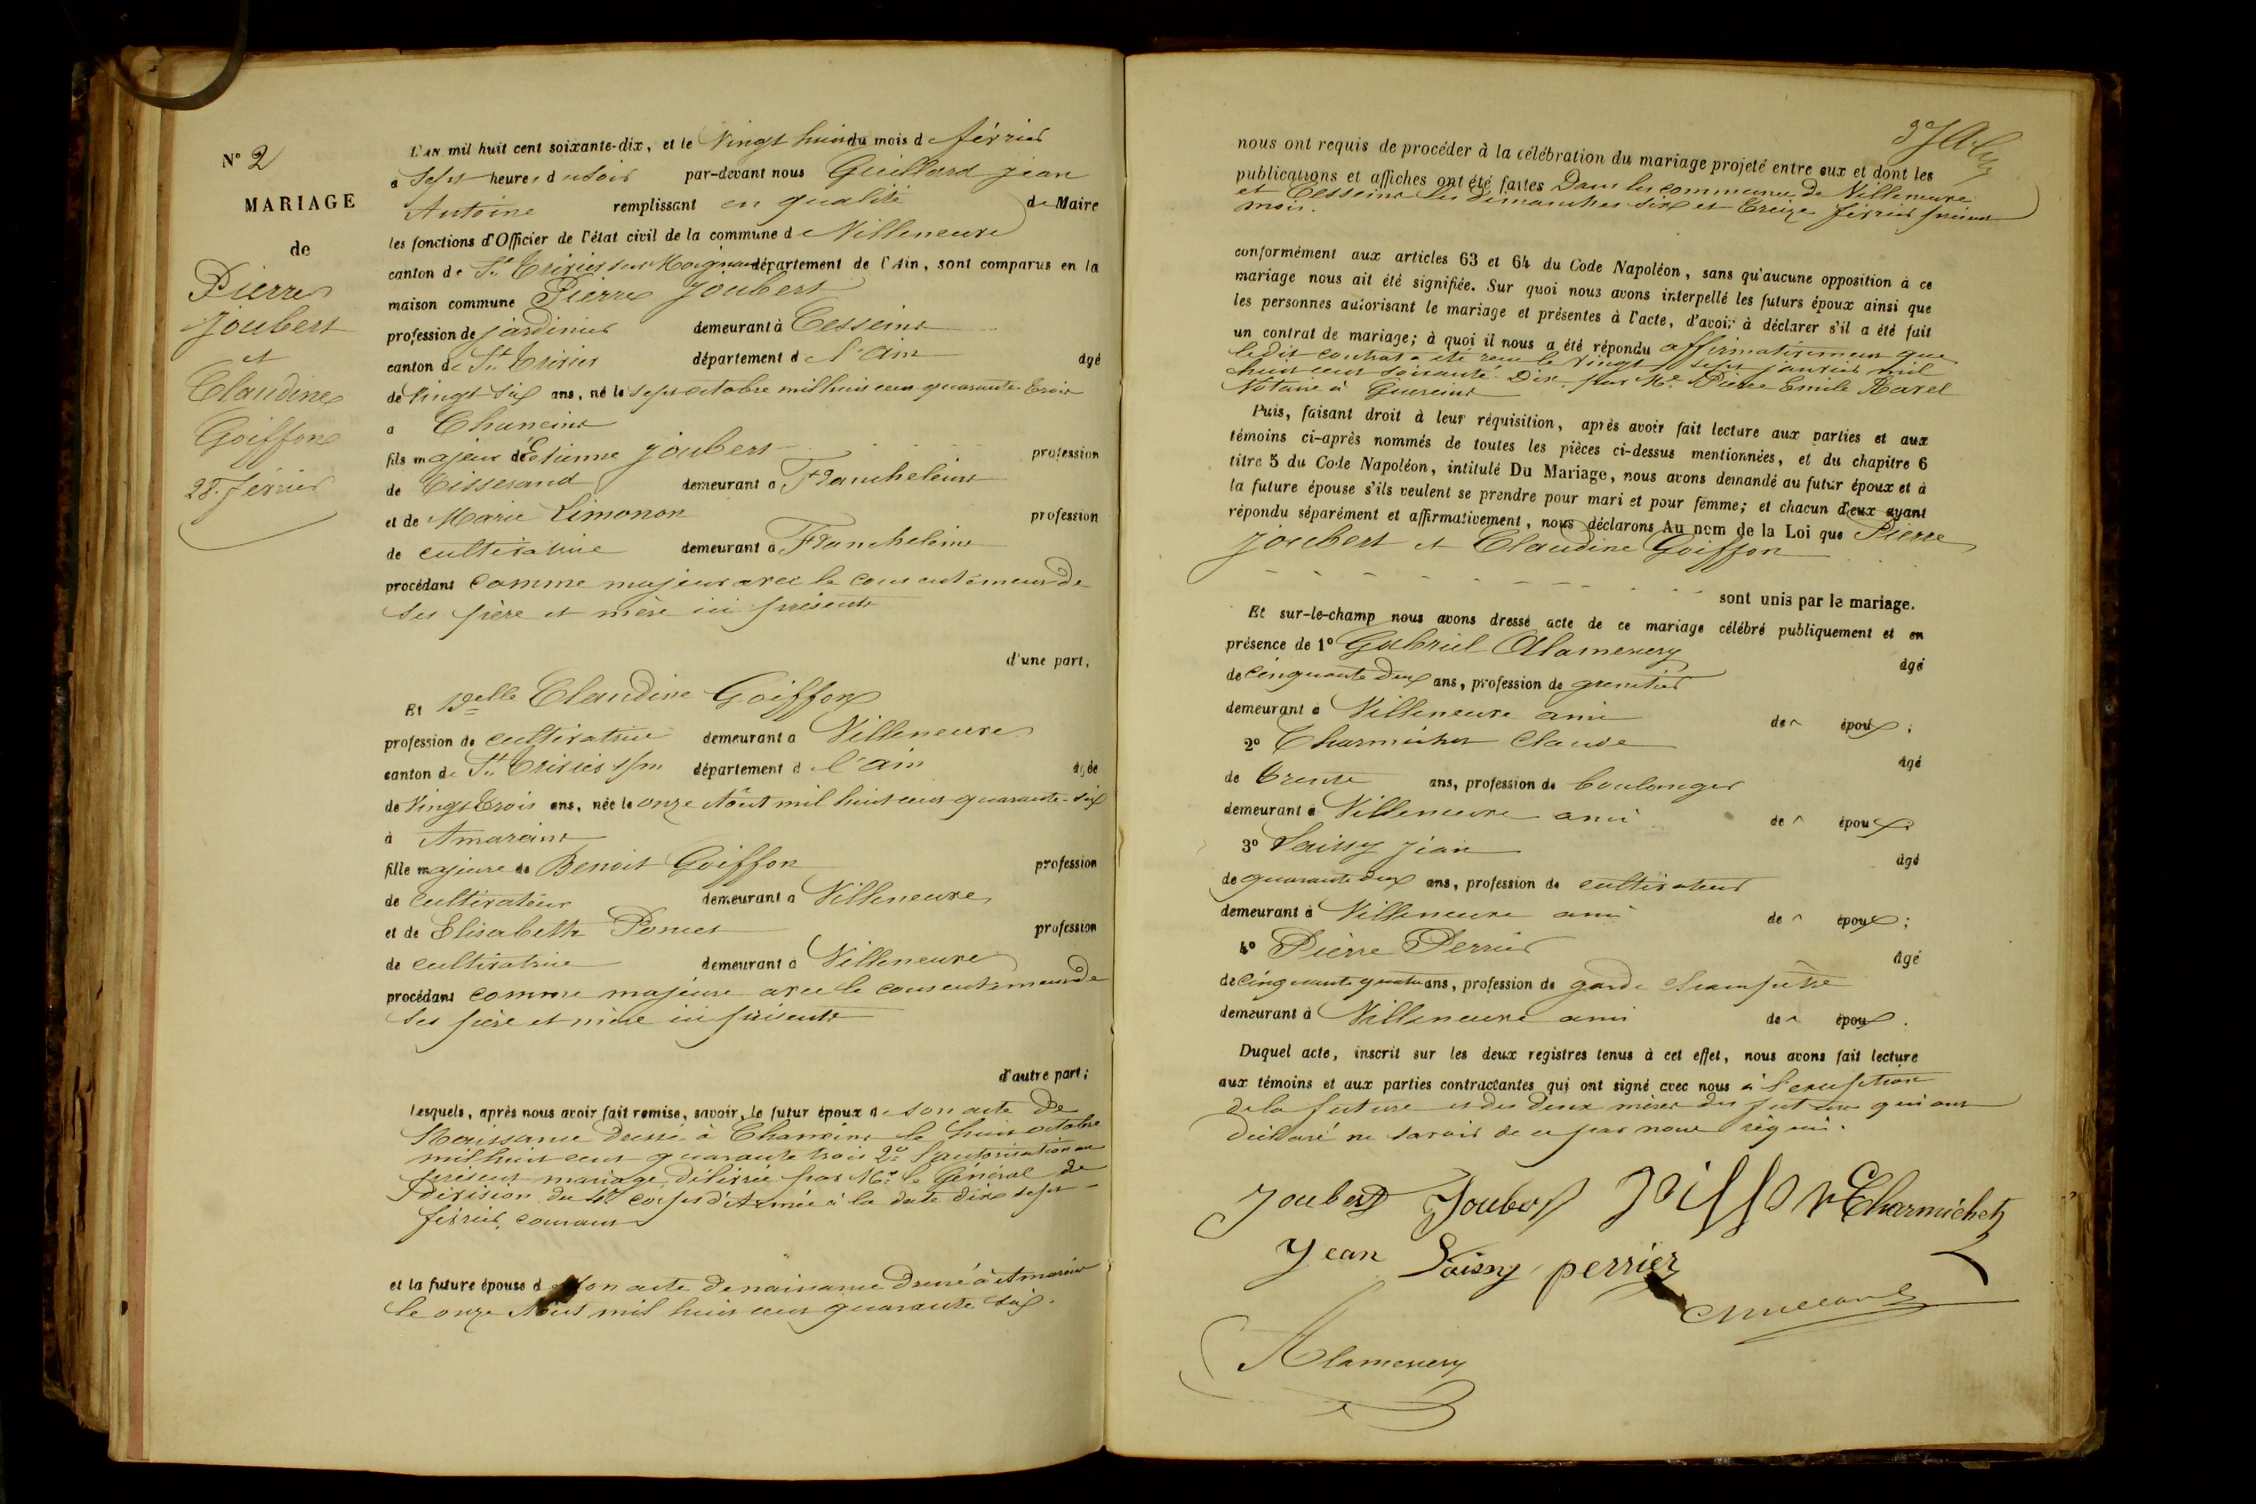 N° 2
MARIAGE
de
Pierre
Joubert
et
Claudine
Goiffon
28 février
L'AN mil huit cent soixante-dix, et le Vingt huit du mois de février
à Sept heures du soir par-devant nous Guillard Jean
Antoine remplissant en qualité de Maire
les fonctions d'Officier de l'état civil de la commune de Villeneuve
canton de St Trivier sur Moignans département de l'Ain, sont comparus en la
maison commune Pierre Joubert
profession de jardinier demeurant à Cesseins
canton de St Trivier département de l'Ain âgé
de Vingt Six ans, né le sept octobre mil huit cent quarante trois
à Chaneins
fils majeur de Etienne Joubert profession
de Tisserand demeurant à Francheleins
et de Marie Limonon profession
de cultivatrice demeurant à Francheleins
procédant comme majeur avec le consentement de
ses père et mère ici présents
d'une part,
Et Delle Claudine Goiffon
profession de cultivatrice demeurant à Villeneuve
canton de St Trivier s/m département de l'Ain âgée
de Vingt Trois ans, née le onze Août mil huit cent quarante-six
à Amareins
fille majeure de Benoit Goiffon profession
de cultivateur demeurant à Villeneuve
et de Elisabeth Poncet profession
de cultivatrice demeurant à Villeneuve
procédant comme majeure avec le consentement de
ses père et mère ici présents
d'autre part;
Lesquels, après nous avoir fait remise, savoir, le futur époux de son acte de
Naissance dressé à Chaneins le huit octobre
mil huit cent quarante trois 2° l'autorisation au
présent mariage, délivrée par Mr le Général de
division du 4e corps d'Armée à la date dix sept
février courant
et la future épouse de son acte de naissance dressé à Amareins
le onze Août mil huit cent quarante six.
nous ont requis de procéder à la célébration du mariage projeté entre eux et dont les
publications et affiches ont été faites Dans les communes de Villeneuve
et Cesseins les dimanches six et treize février présent
mois.
conformément aux articles 63 et 64 du Code Napoléon, sans qu'aucune opposition à ce
mariage nous ait été signifiée. Sur quoi nous avons interpellé les futurs époux ainsi que
les personnes autorisant le mariage et présentes à l'acte, d'avoir à déclarer s'il a été fait
un contrat de mariage; à quoi il nous a été répondu affirmativement que
ledit contrat a été reçu le vingt sept janvier mil
huit cent soixante-Dix par Me Pierre Emile Ravel
Notaire à Guereins
Puis, faisant droit à leur réquisition, après avoir fait lecture aux parties et aux
témoins ci-après nommés de toutes les pièces ci-dessus mentionnées, et du chapitre 6
titre 5 du Code Napoléon, intitulé Du Mariage, nous avons demandé au futur époux et à
la future épouse s'ils veulent se prendre pour mari et pour femme; et chacun d'eux ayant
répondu séparément et affirmativement, nous déclarons Au nom de la Loi que Pierre
Joubert et Claudine Goiffon
sont unis par le mariage.
Et sur-le-champ nous avons dressé acte de ce mariage célébré publiquement et en
présence de 1° Gabriel Alamenery âgé
de cinquante deux ans, profession de grenetier
demeurant à Villeneuve ami des époux;
2° Charmichet Claude âgé
de trente ans, profession de boulanger
demeurant à Villeneuve ami des époux
3° Saissy Jean âgé
de quarante deux ans, profession de cultivateur
demeurant à Villeneuve ami des époux;
4° Pierre Perrier âgé
de cinquante quatre ans, profession de garde champêtre
demeurant à Villeneuve ami des époux.
Duquel acte, inscrit sur les deux registres tenus à cet effet, nous avons fait lecture
aux témoins et aux parties contractantes qui ont signé avec nous à l'exception
de la future et des deux mères des futurs qui ont
déclaré ne savoir de ce par nous requis.
Joubert Joubert Charmichet
Jean Saissy perrier
Alamenery